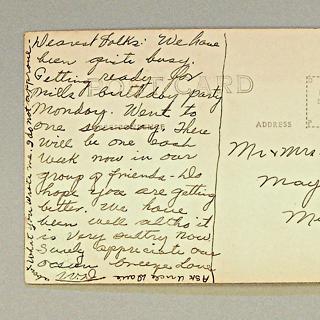 Dearest Folks: We have
been quite busy.
Getting ready for
Mills birthday party
Monday. Went to
one There
will be one each
week now in our
group of friends - Do
hope you are getting
better. We have
been well altho' it
is very sultry now
Surely appreciate our
ocean breeze Love
Ask Uncle Dave
what you over me. I do not approve
POST CARD
ADDRESS
Mr & Mrs
May